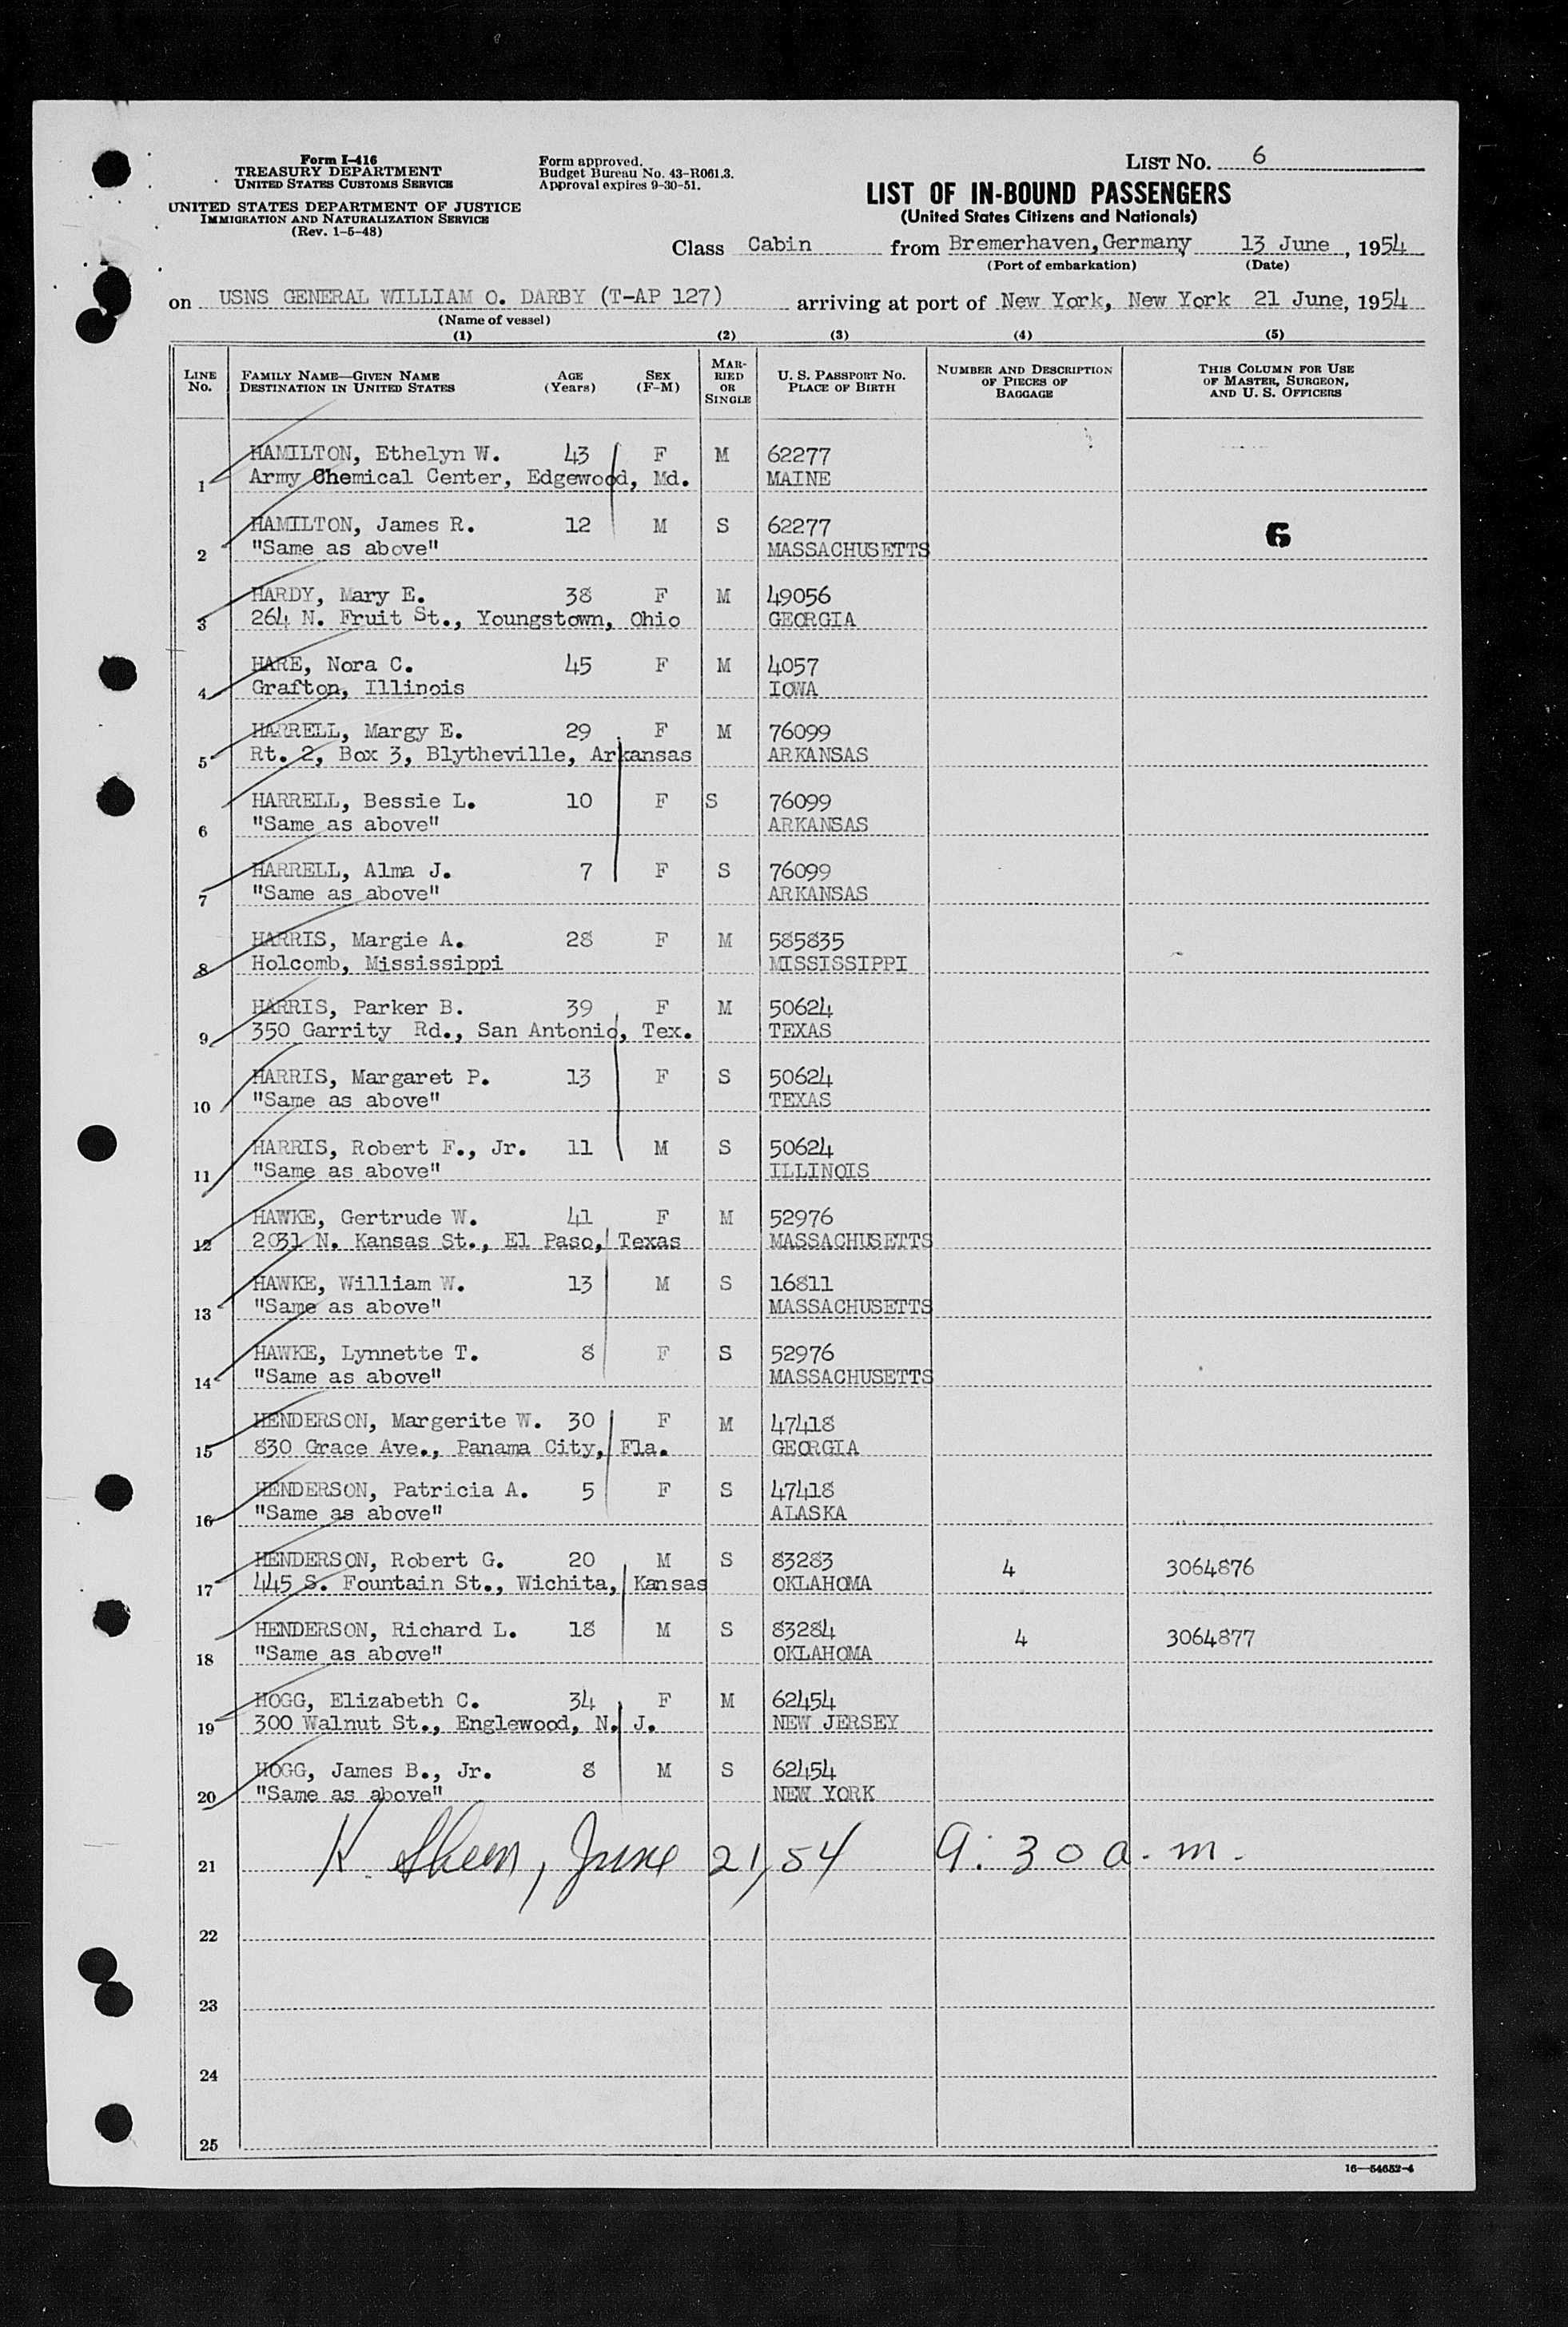 Form I-416
TREASURY DEPARTMENT
UNITED STATES CUSTOMS SERVICE
UNITED STATES DEPARTMENT OF JUSTICE
IMMIGRATION AND NATURALIZATION SERVICE
(Rev. 1-5-48)
Form approved.
Budget Bureau No. 43-R061.3.
Approval expires 9-30-51.
LIST No. 6
LIST OF IN-BOUND PASSENGERS
(United States Citizens and Nationals)
Class Cabin from Bremerhaven, Germany 13 June, 1954
(Port of embarkation) (Date)
on USNS GENERAL WILLIAM O. DARBY (T-AP 127) arriving at port of New York, New York 21 June, 1954
(Name of vessel)
(1) (2) (3) (4) (5)
LINE No. FAMILY NAME—GIVEN NAME DESTINATION IN UNITED STATES AGE (Years) SEX (F-M) MARRIED OR SINGLE U. S. PASSPORT NO. PLACE OF BIRTH NUMBER AND DESCRIPTION OF PIECES OF BAGGAGE THIS COLUMN FOR USE OF MASTER, SURGEON, AND U. S. OFFICERS
HAMILTON, Ethelyn W. 43 F M 62277
1 Army Chemical Center, Edgewood, Md. MAINE
HAMILTON, James R. 12 M S 62277 6
2 "Same as above" MASSACHUSETTS
HARDY, Mary E. 38 F M 49056
3 264 N. Fruit St., Youngstown, Ohio GEORGIA
HARE, Nora C. 45 F M 4057
4 Grafton, Illinois IOWA
HARRELL, Margy E. 29 F M 76099
5 Rt. 2, Box 3, Blytheville, Arkansas ARKANSAS
HARRELL, Bessie L. 10 F S 76099
6 "Same as above" ARKANSAS
HARRELL, Alma J. 7 F S 76099
7 "Same as above" ARKANSAS
HARRIS, Margie A. 28 F M 585835
8 Holcomb, Mississippi MISSISSIPPI
HARRIS, Parker B. 39 F M 50624
9 350 Garrity Rd., San Antonio, Tex. TEXAS
HARRIS, Margaret P. 13 F S 50624
10 "Same as above" TEXAS
HARRIS, Robert F., Jr. 11 M S 50624
11 "Same as above" ILLINOIS
HAWKE, Gertrude W. 41 F M 52976
12 2031 N. Kansas St., El Paso, Texas MASSACHUSETTS
HAWKE, William W. 13 M S 16811
13 "Same as above" MASSACHUSETTS
HAWKE, Lynnette T. 8 F S 52976
14 "Same as above" MASSACHUSETTS
HENDERSON, Margerite W. 30 F M 47418
15 830 Grace Ave., Panama City, Fla. GEORGIA
HENDERSON, Patricia A. 5 F S 47418
16 "Same as above" ALASKA
HENDERSON, Robert G. 20 M S 83283 4 3064876
17 445 S. Fountain St., Wichita, Kansas OKLAHOMA
HENDERSON, Richard L. 18 M S 83284 4 3064877
18 "Same as above" OKLAHOMA
HOGG, Elizabeth C. 34 F M 62454
19 300 Walnut St., Englewood, N. J. NEW JERSEY
HOGG, James B., Jr. 8 M S 62454
20 "Same as above" NEW YORK
21 K. June 21, 54 9:30 a.m.
22
23
24
25
16—54652-4